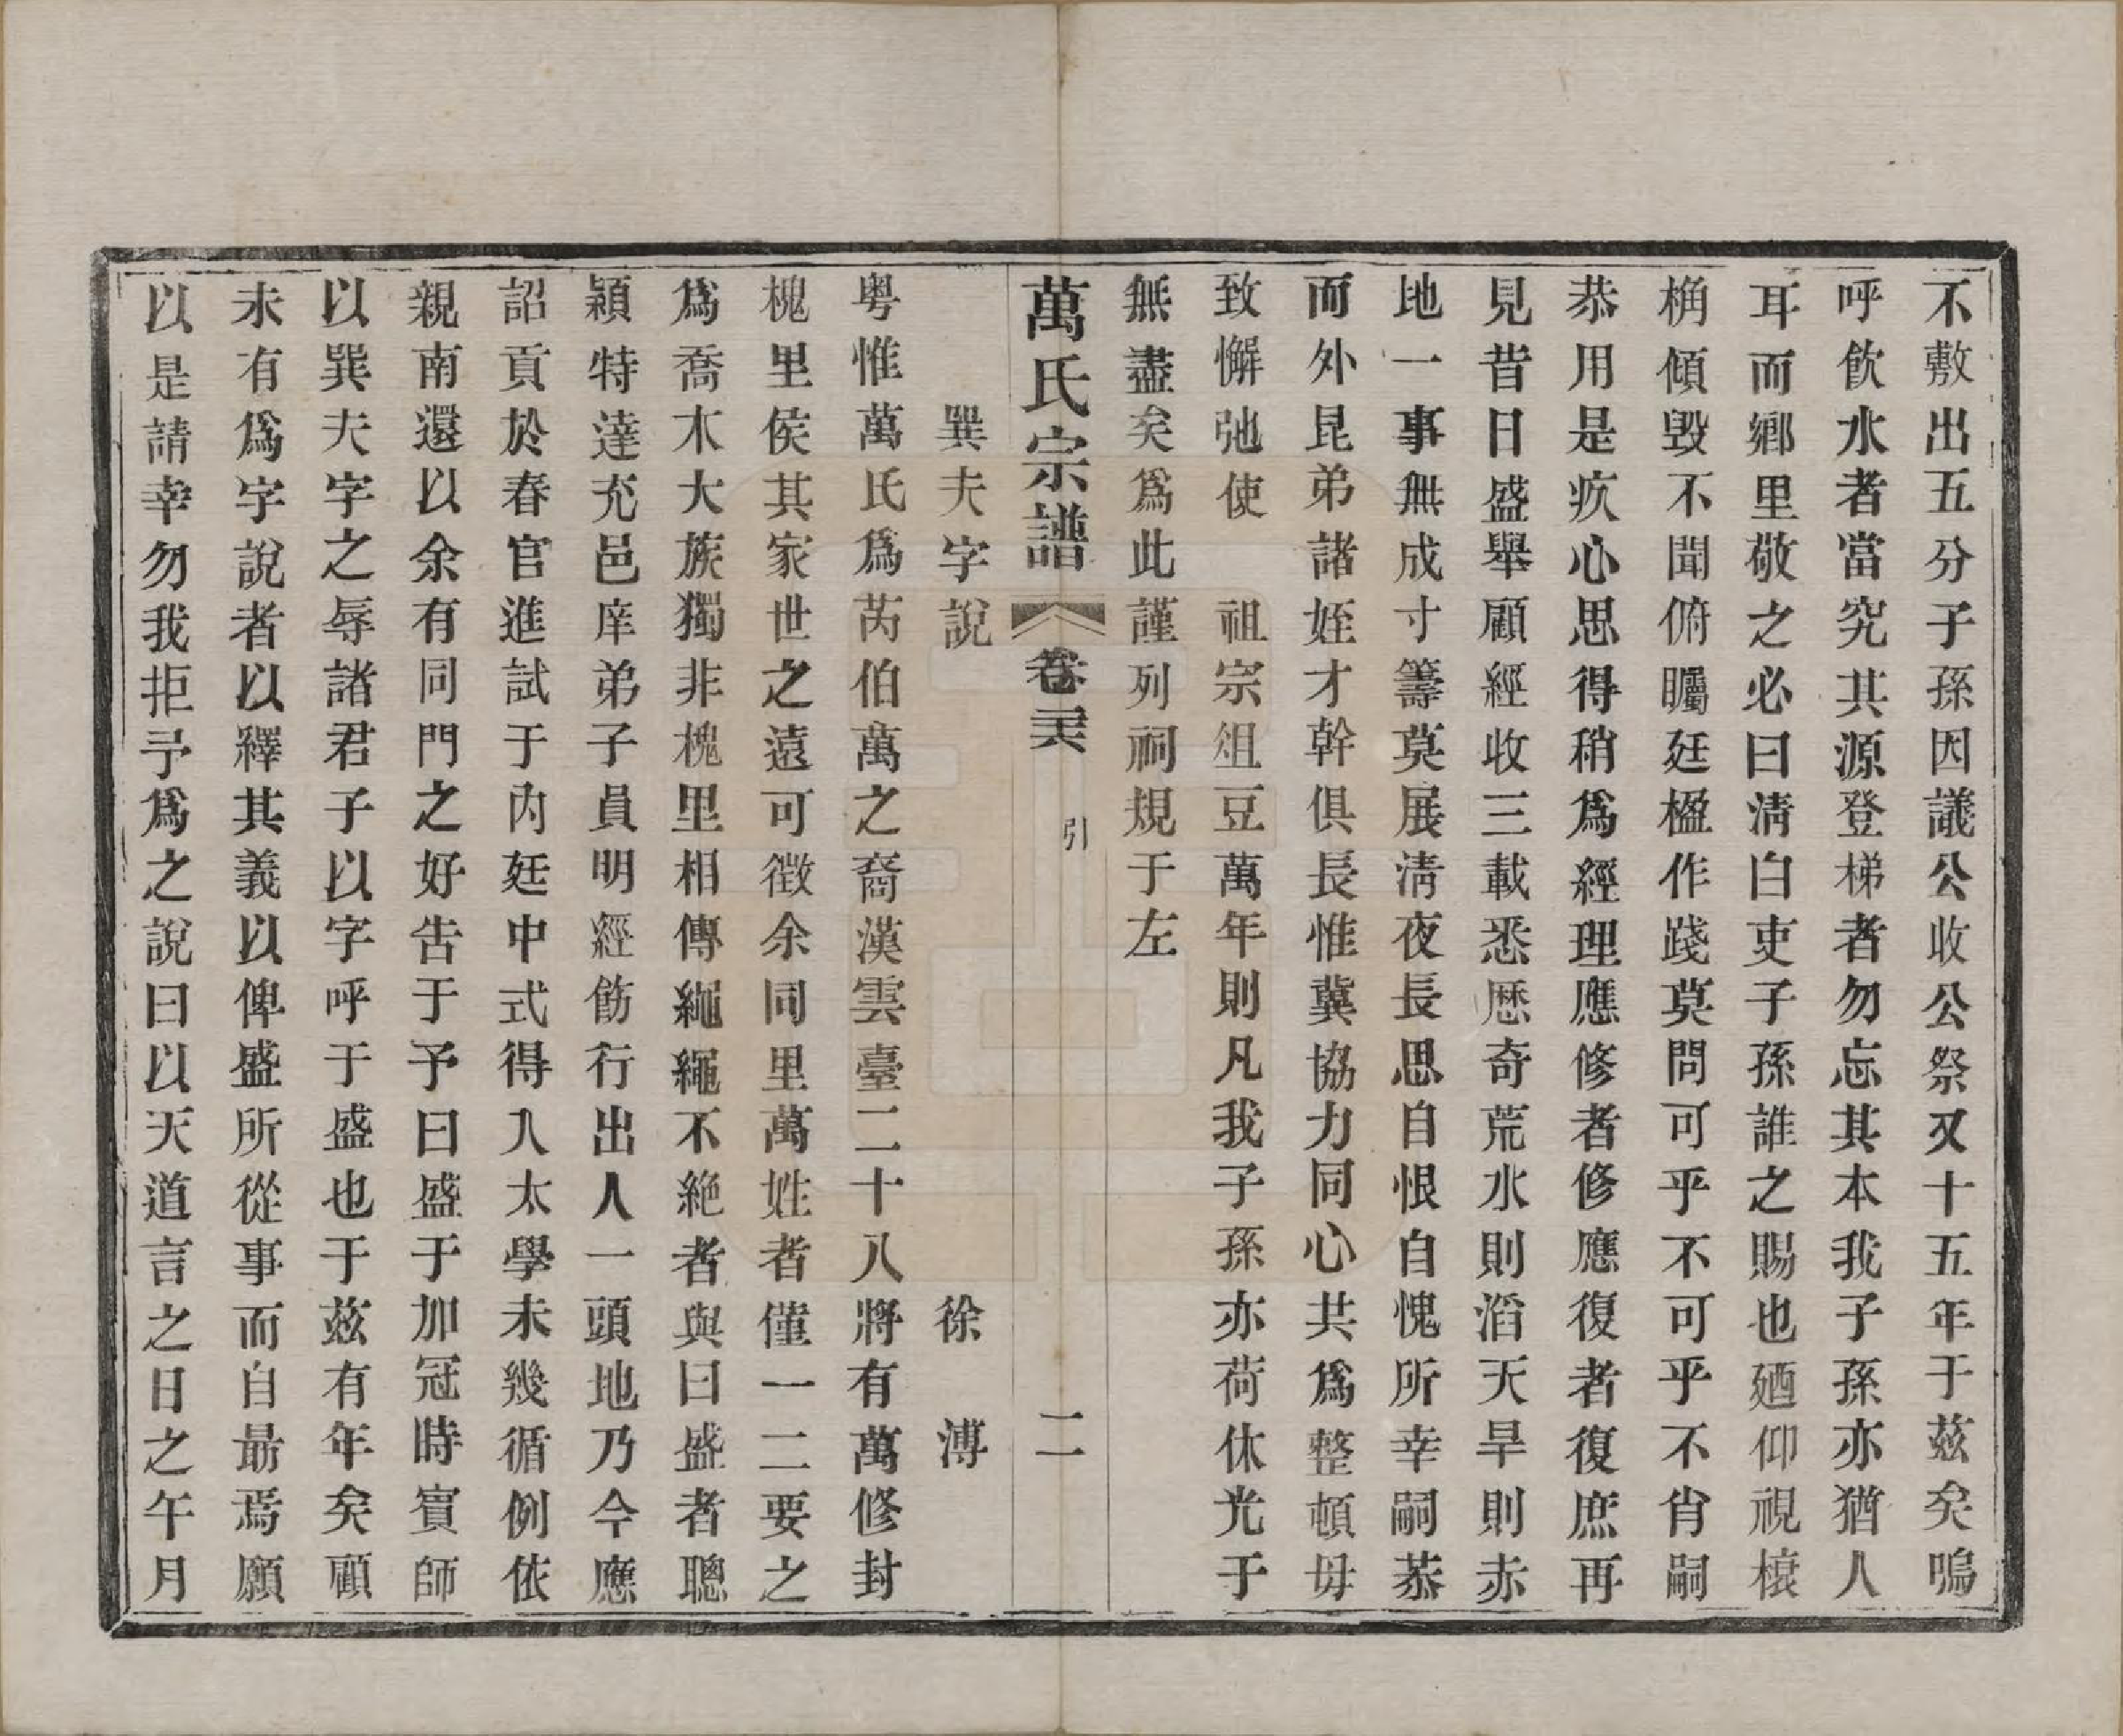 不敷出五分子孫因議公收公祭又十五年于茲矣嗚
呼飲水者當究其源登梯者勿忘其本我子孫亦猶人
耳而鄉里敬之必曰清白吏子孫誰之賜也廼仰視榱
桷傾毀不聞俯矚廷楹作踐莫問可乎不可乎不肖嗣
恭用是疚心思得稍爲經理應修者修應復者復庶再
見昔日盛舉顧經收三載悉歷奇荒水則滔天旱則赤
地一事無成寸籌莫展清夜長思自恨自愧所幸嗣恭
而外昆弟諸姪才幹俱長惟冀協力同心共爲整頓毋
致懈弛使　祖宗俎豆萬年則凡我子孫亦荷休光于
無盡矣爲此謹列祠規于左
萬氏宗譜　卷 引　二
巽夫字說　徐　溥
粵惟萬氏爲芮伯萬之裔漢雲臺二十八將有萬修封
槐里侯其家世之遠可徵余同里萬姓者僅一二要之
爲喬木大族獨非槐里相傳繩繩不絶者與曰盛者聰
穎特達充邑庠弟子員明經飭行出人一頭地乃今應
詔貢於春官進試于內廷中式得入太學未幾循例依
親南還以余有同門之好告于予曰盛于加冠時賓師
以巽夫字之辱諸君子以字呼于盛也于茲有年矣顧
未有爲字說者以繹其義以俾盛所從事而自最焉願
以是請幸勿我拒予爲之說曰以天道言之日之午月